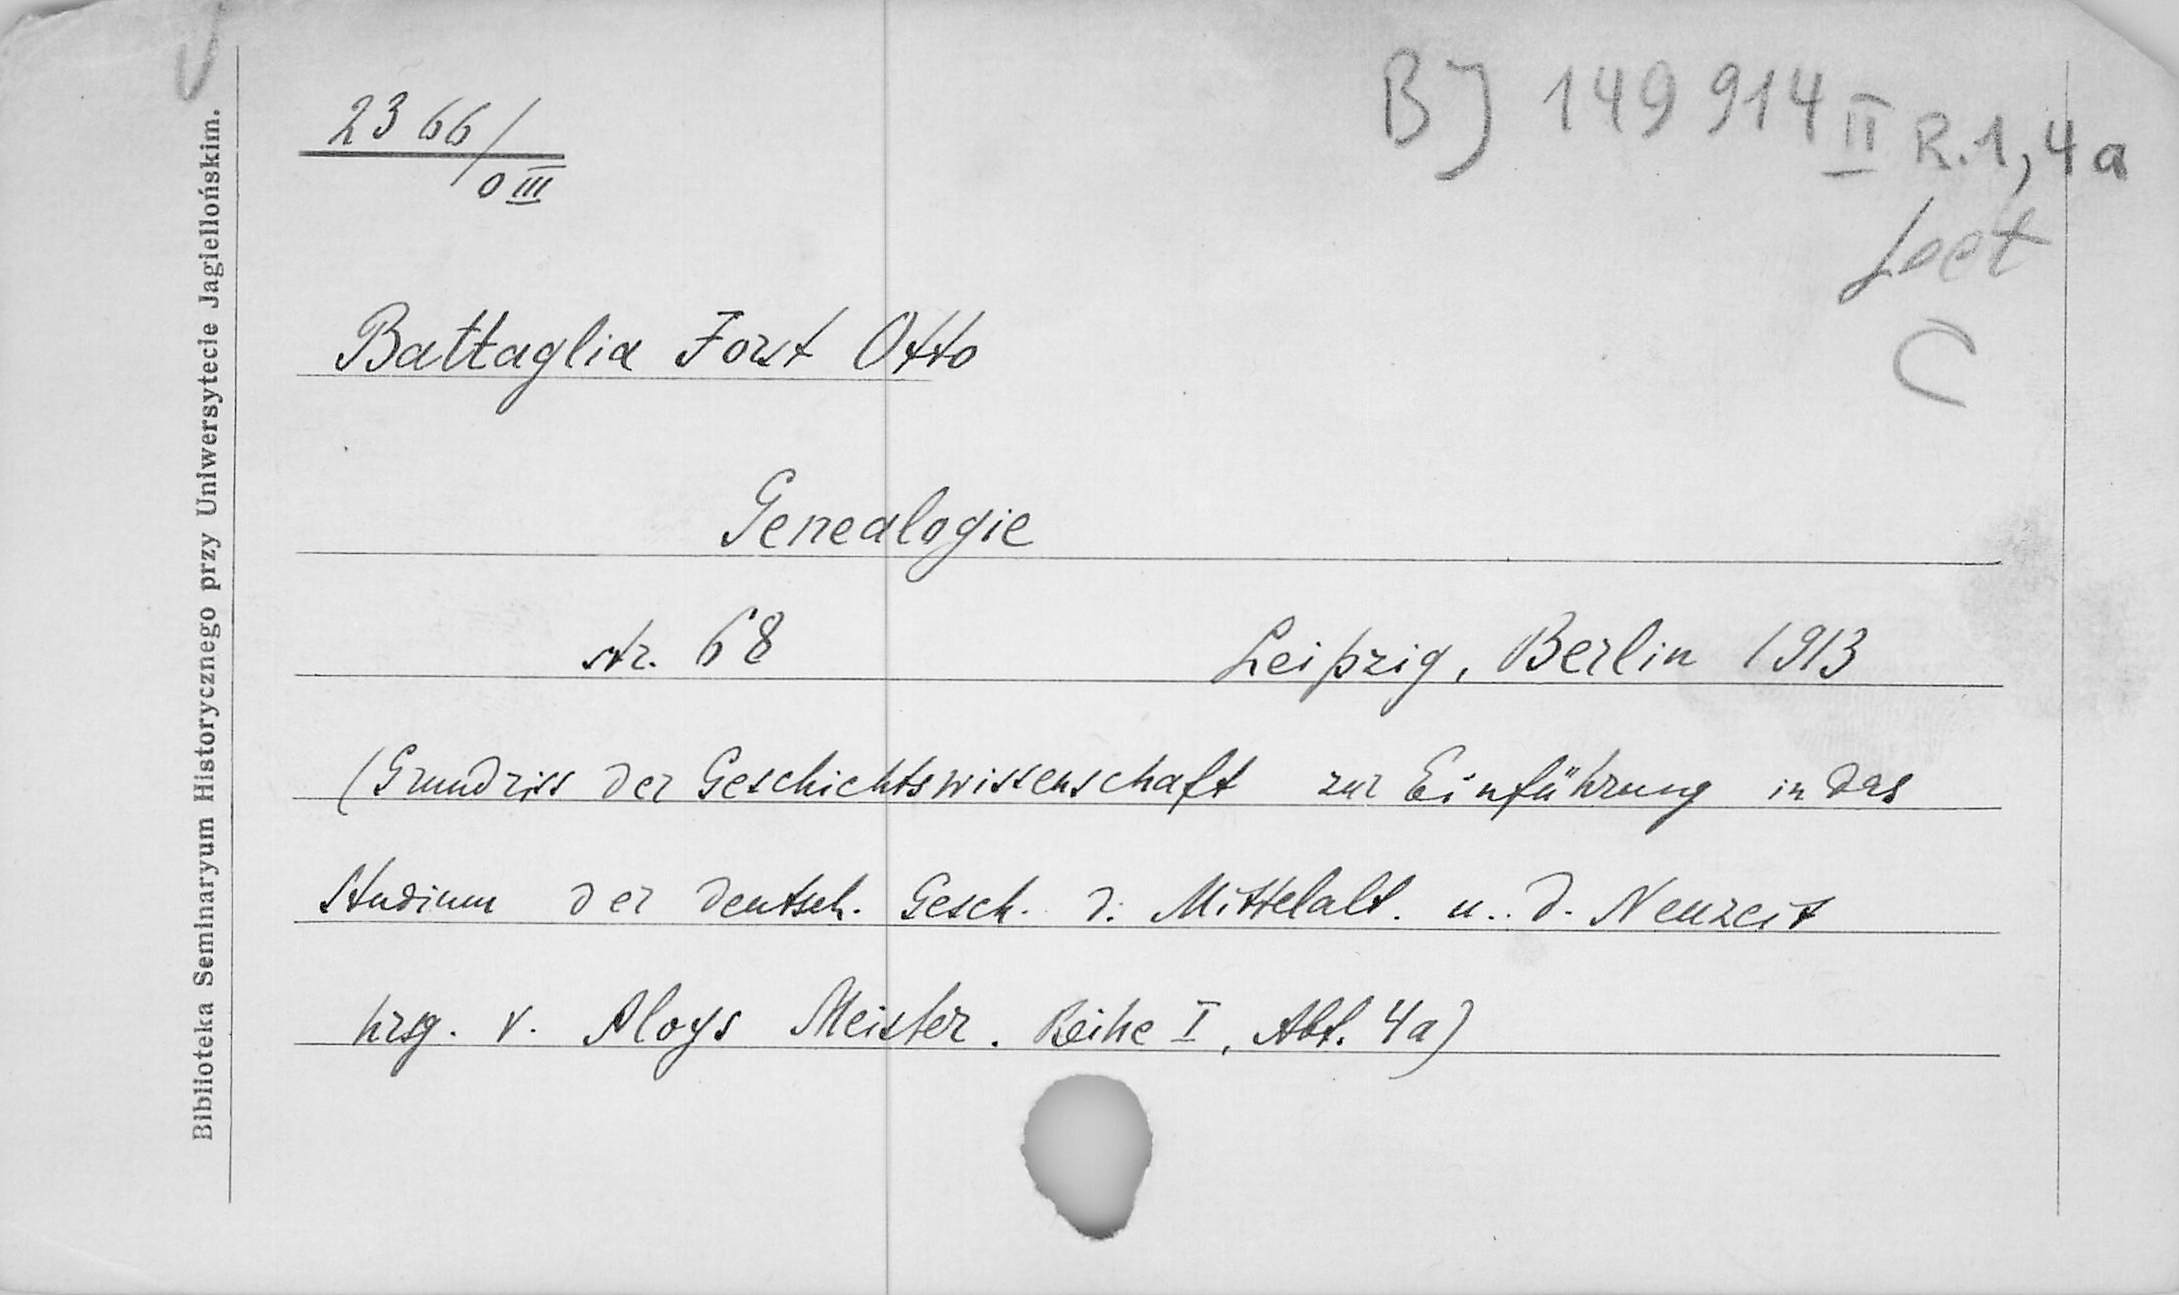 2366/
0 III
BJ 149 914 II R.1, 4a
Lect
C
Battaglia Forst Otto
Genealogie
str. 68 Leipzig, Berlin 1913
(Grundriss der Geschichtswissenschaft zur Einführung in das
Studium der deutsch. Gesch. d. Mittelalt. u. d. Neuzeit
hrsg. v. Aloys Meister. Reihe I, Abt. 4a)
Biblioteka Seminaryum Historycznego przy Uniwersytecie Jagiellońskim.